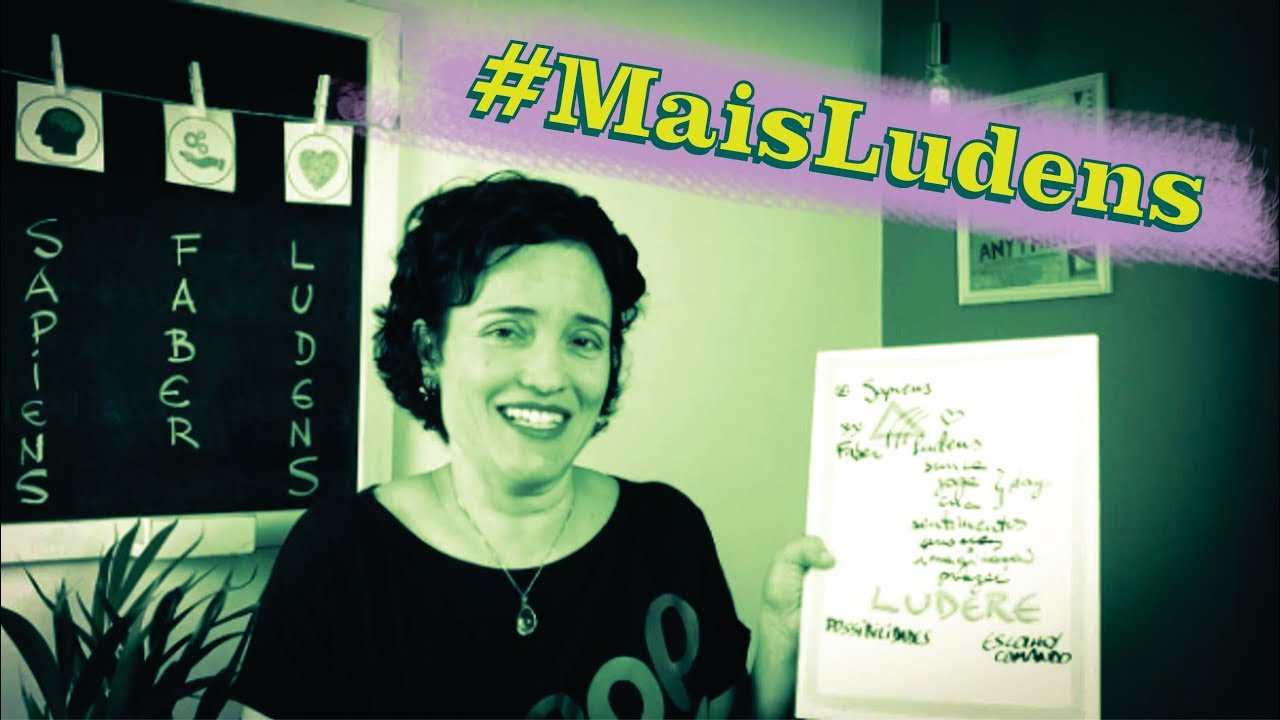 #MaisLudens
SAPIENS
FABER
LUDENS
ANYTHIN
Sapiens
Faber
Ludens
joga
play
cria
sentimentos
prazer
LUDERE
POSSIBILIDADES
ESCOLHO
COMANDO